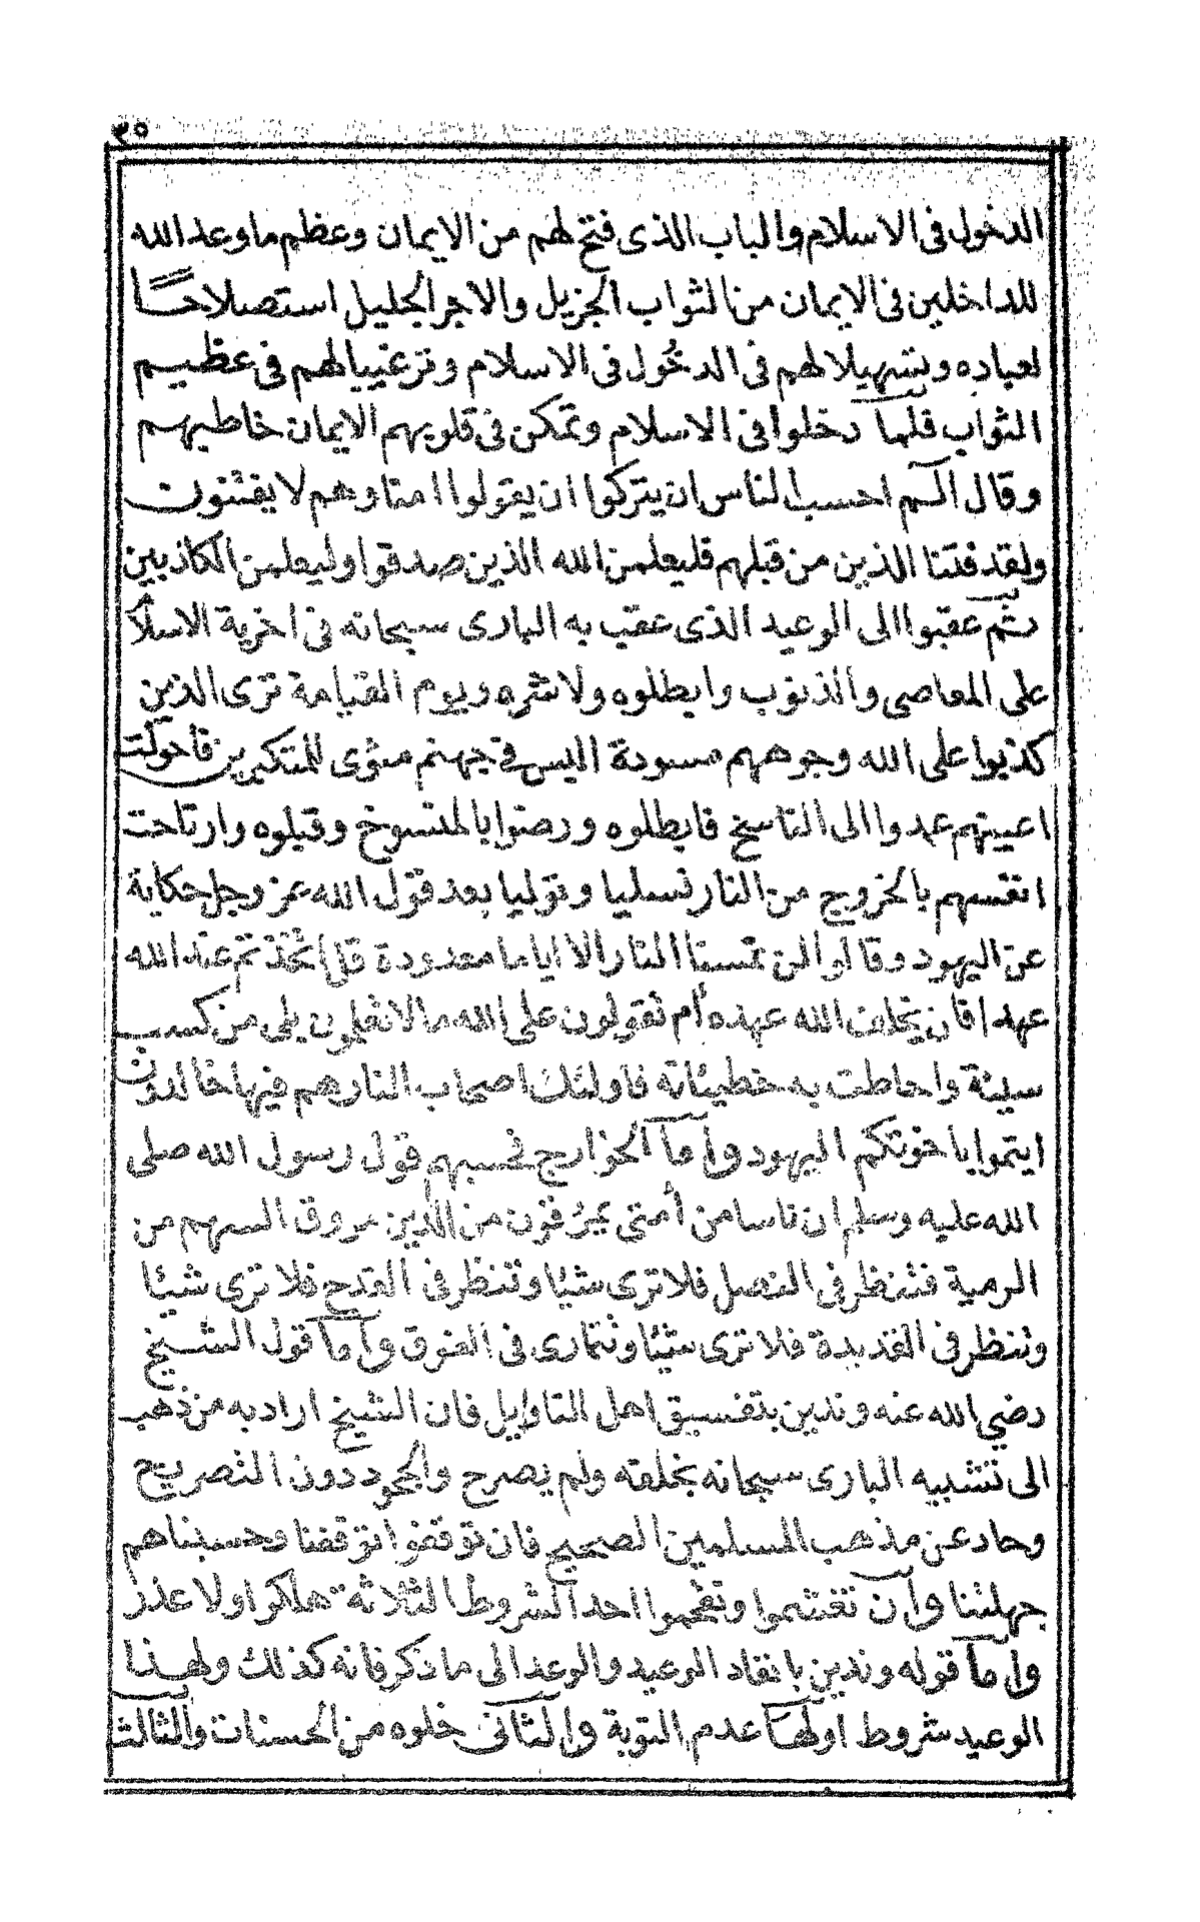 ٣٥
الدخول فى الاسلام والباب الذى فتح لهم من الايمان وعظم ما وعد الله
للداخلين فى الايمان من الثواب الجزيل والاجر الجليل استصلاحًا
لعباده وتسهيلا لهم فى الدخُول فى الاسلام وترغيبا لهم فى عظيم
الثواب فلما دخلوا فى الاسلام وتمكن فى قلوبهم الايمان خاطبهم
وقال الٓم احسب الناس ان يتركوا ان يقولوا امنا وهم لا يفتنون
ولقد فتنا الذين من قبلهم فليعلمن الله الذين صدقوا وليعلمن الكاذبين
ثم عقبوا الى الوعيد الذى عقب به البارى سبحانه فى اخرية الاسلام
على المعاصى والذنوب وابطلوه ولا نثره ويوم القيامة ترى الذين
كذبوا على الله وجوههم مسودة اليس فى جهنم مثوى للمتكبرين فاحولت
اعينهم عمدوا الى الناسخ فابطلوه ورضوا بالمنسوخ وقبلوه وارتاحت
انفسهم بالخروج من النار تسليا وتوليا بعد قول الله عز وجل حكاية
عن اليهود وقالوا لن تمسنا النار الا اياما معدودة قل أتخذتم عند الله
عهدا فان يخلف الله عهده أم تقولون على الله ما لا تعلمون بلى من كسب
سيئة واحاطت به خطيئاته فاولئك اصحاب النار هم فيها خالدون
ايتموا باخوتكم اليهود وأما الخوارج فحسبهم قول رسول الله صلى
الله عليه وسلم ان ناسا من أمتى يمرُقون من الدين مروق السهم من
الرمية فتنظر فى النصل فلا ترى شيئا وتنظر فى القدح فلا ترى شيئا
وتنظر فى القديدة فلا ترى شيئا وتتمارى فى الفوق وأما قول الشيخ
رضي الله عنه وندين بتفسيق اهل التاويل فان الشيخ اراد به من ذهب
الى تشبيه البارى سبحانه بخلقه ولم يصرح والجحود دون التصريح
وحاد عن مذهب المسلمين الصحيح فان توقفوا توقفنا وحسبناهم
جهلتنا وان تغشموا وتقحموا احد الشروط الثلاثة هلكوا ولا عذر
واما قوله وندين بانفاد الوعيد والوعد الى ما ذكر فانه كذلك ولهذا
الوعيد شروط اولها عدم التوبة والثانى خلوه من الحسنات والثالث